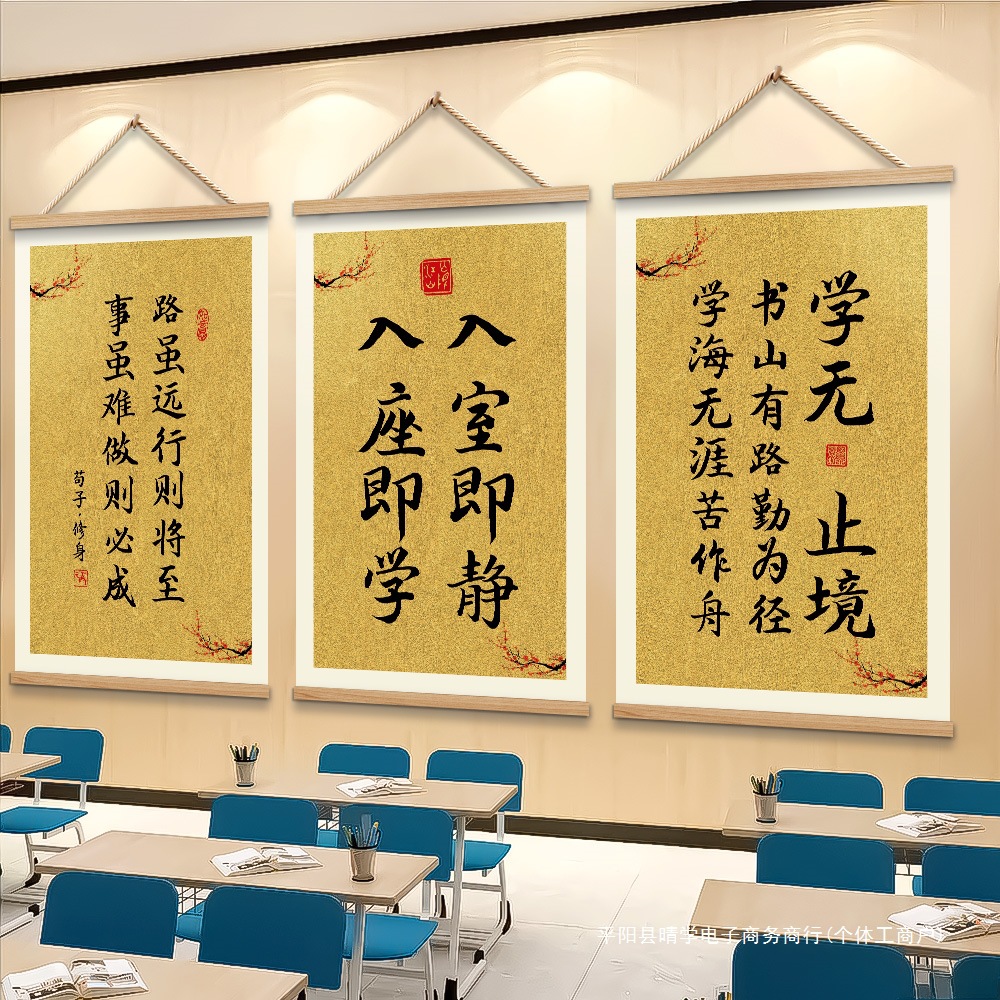 路虽远行则将至
事虽难做则必成
荀子·修身
入室即静
入座即学
学无止境
书山有路勤为径
学海无涯苦作舟
平阳县晴学电子商务商行(个体工商户)